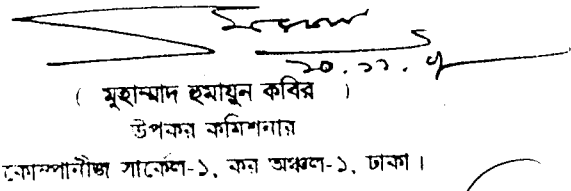 ২০.১১.
( মুহাম্মাদ হুমায়ুন কবির )
উপকর কমিশনার
কোম্পানীজ সার্কেল-১, কর অঞ্চল-১, ঢাকা।